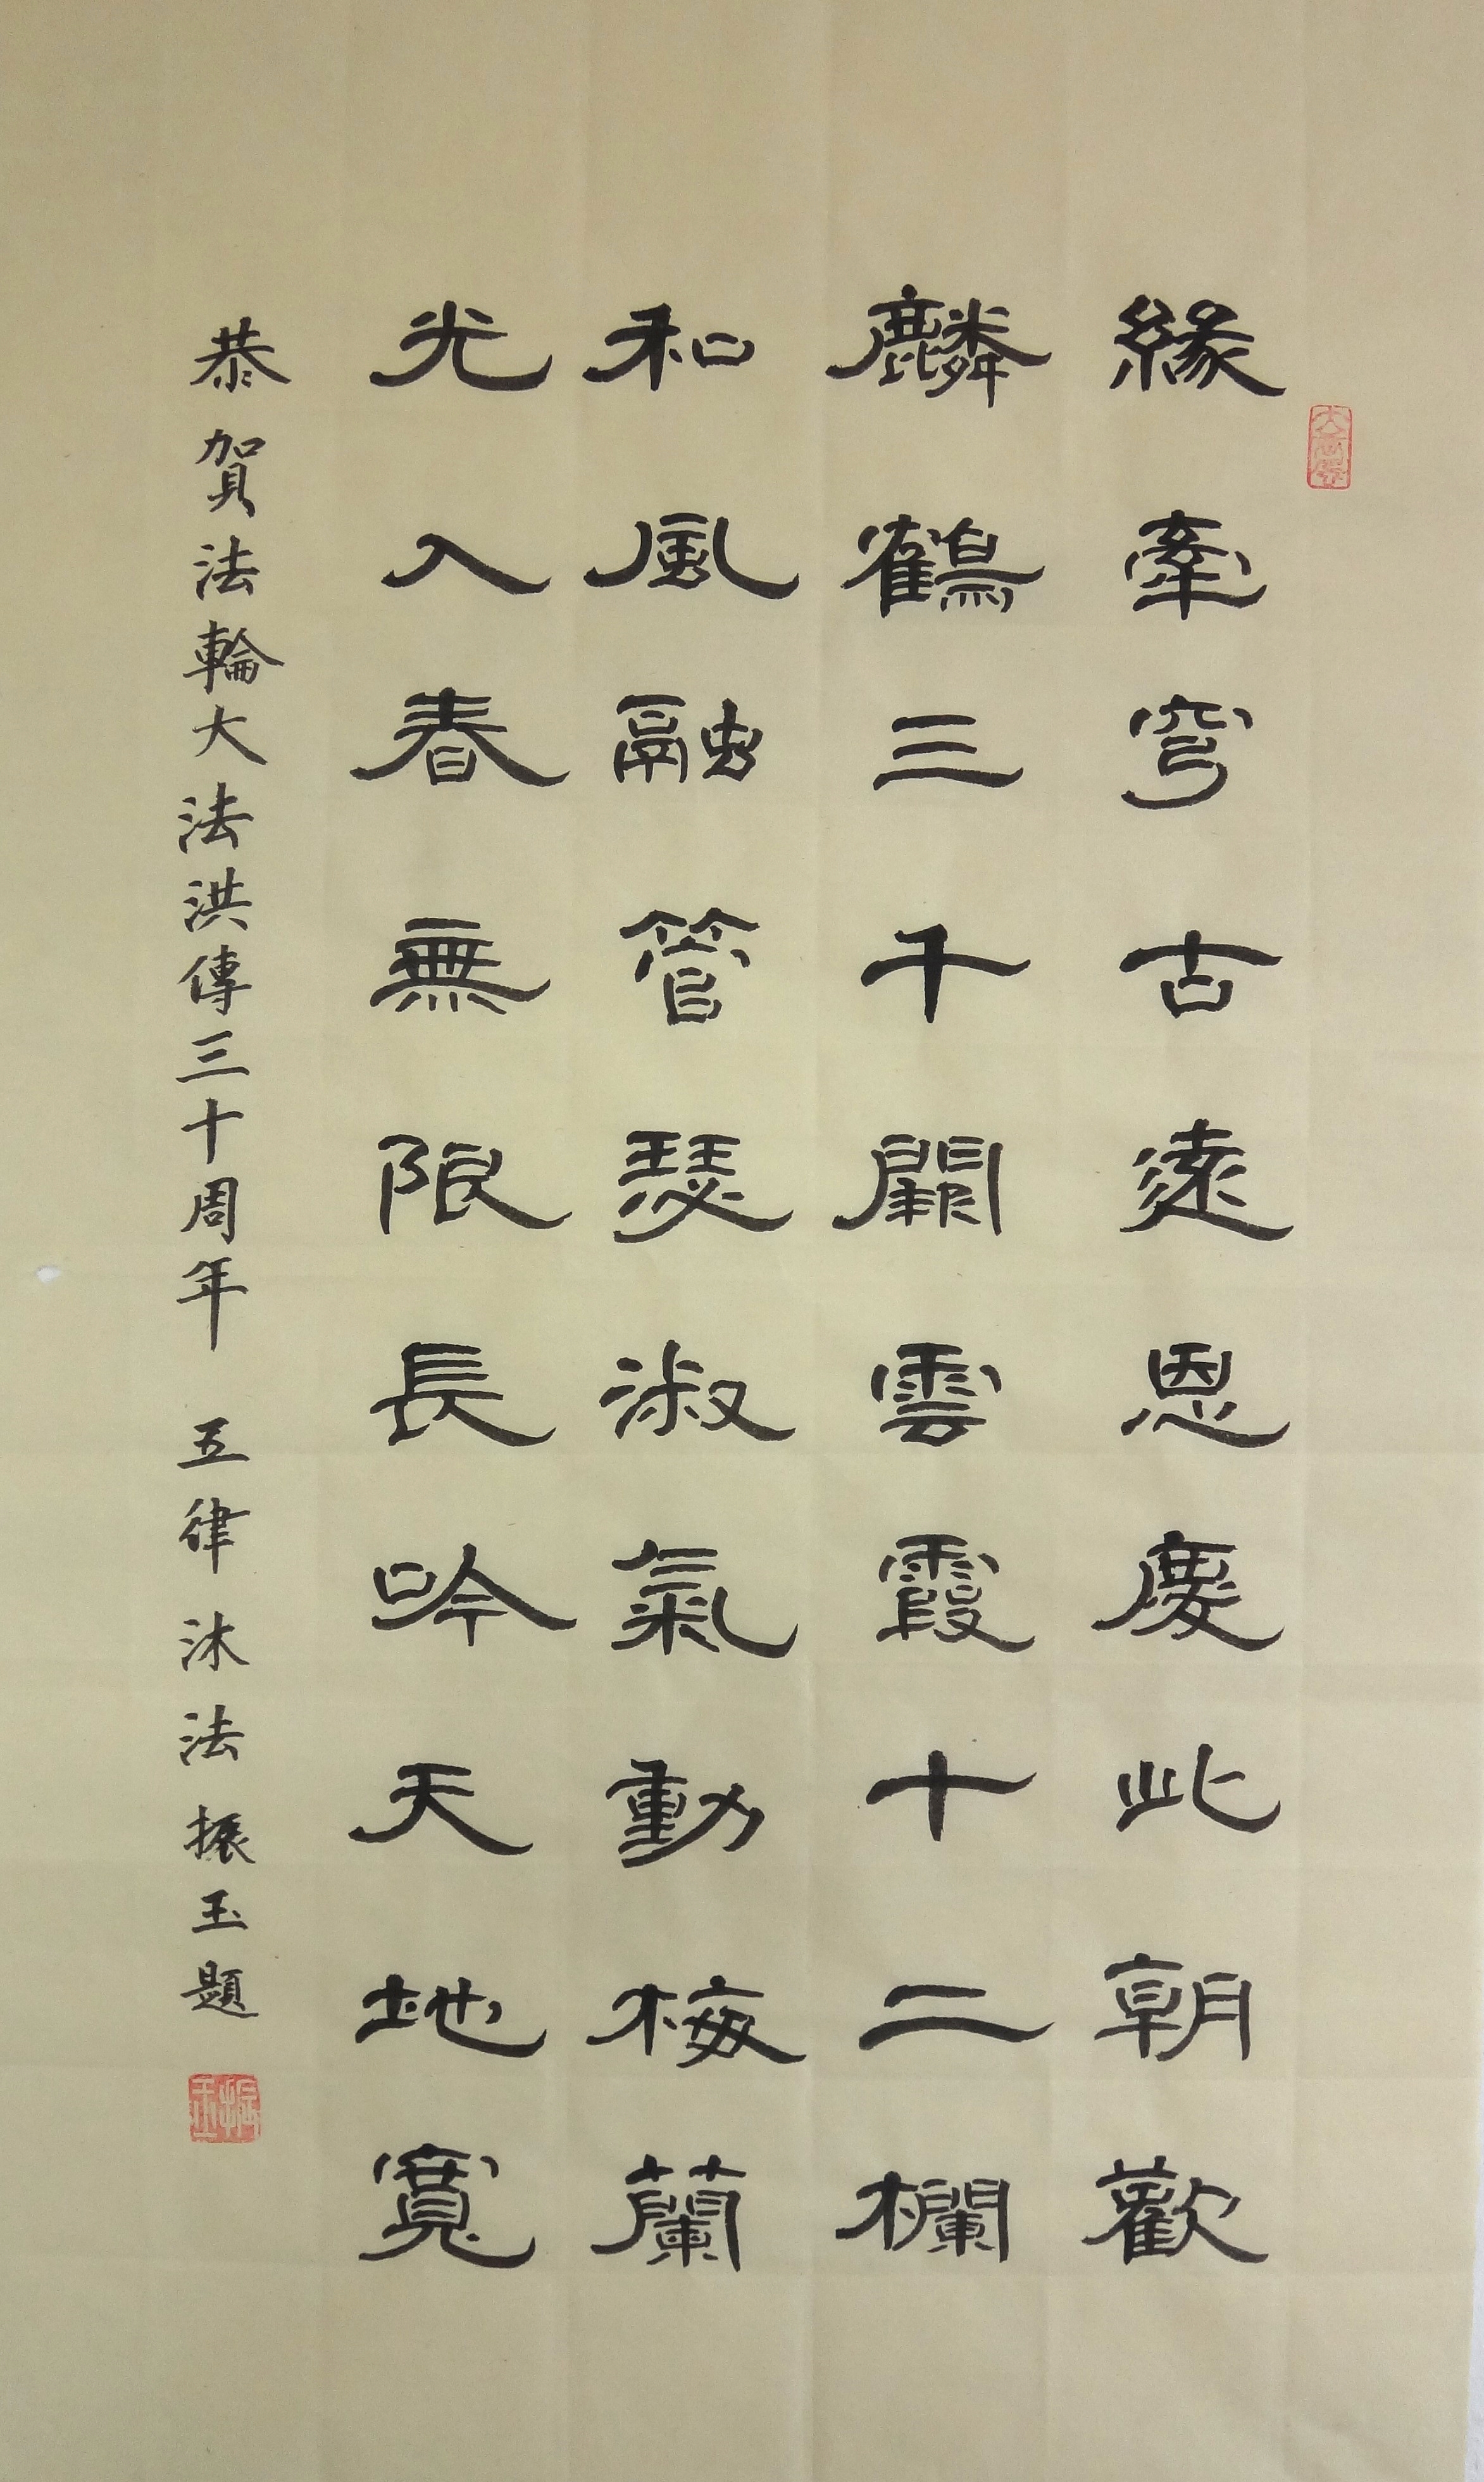 緣牽穹古遠恩慶此朝歡
麟鶴三千闕雲霞十二欄
和風融管瑟淑氣動梅蘭
光入春無限長吟天地寬
恭賀法輪大法洪傳三十周年 五律 沐法 振玉題
振玉